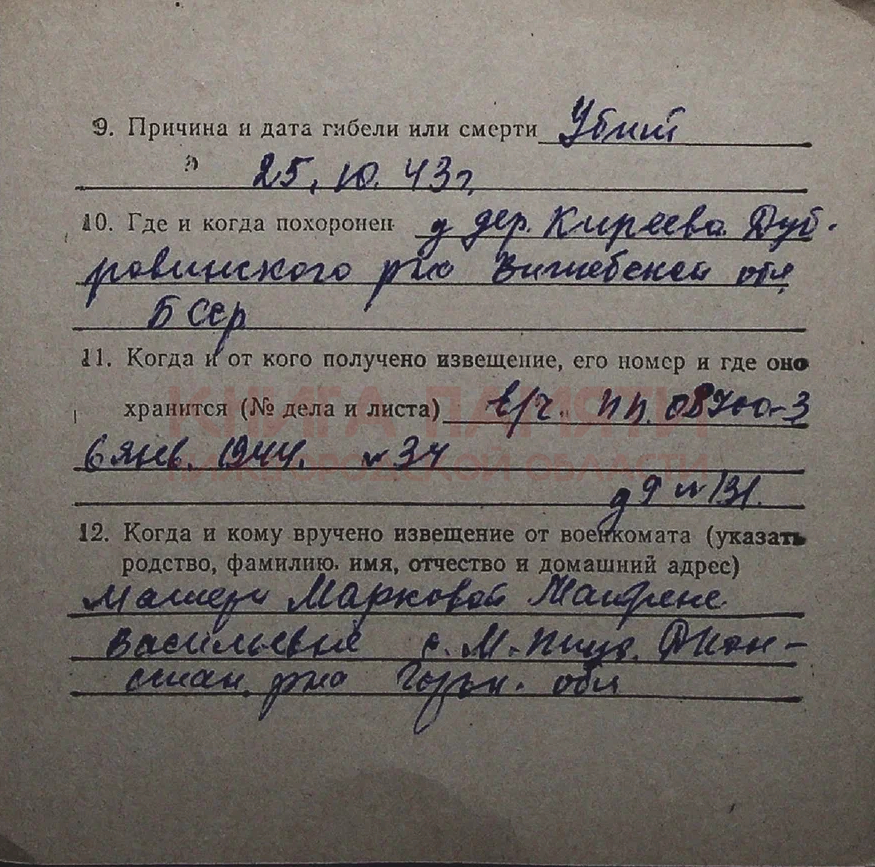 9. Причина и дата гибели или смерти Убит
25. 10. 43 г.
10. Где и когда похоронен у дер. Киреева Дуб-
ровинского р-но Витебской обл
БССР
11. Когда и от кого получено извещение, его номер и где оно
хранится (№ дела и листа) в/ч. пп. 08700-3
КНИГА ПАМЯТИ
6 янв. 1944. № 34
НИЖЕГОРОДСКОЙ ОБЛАСТИ
д 9 № 131.
12. Когда и кому вручено извещение от военкомата (указать
родство, фамилию, имя, отчество и домашний адрес)
Матери Марковой
Васильевне с. М-Пица. Д-Кон-
стан. р-но Горьк. обл